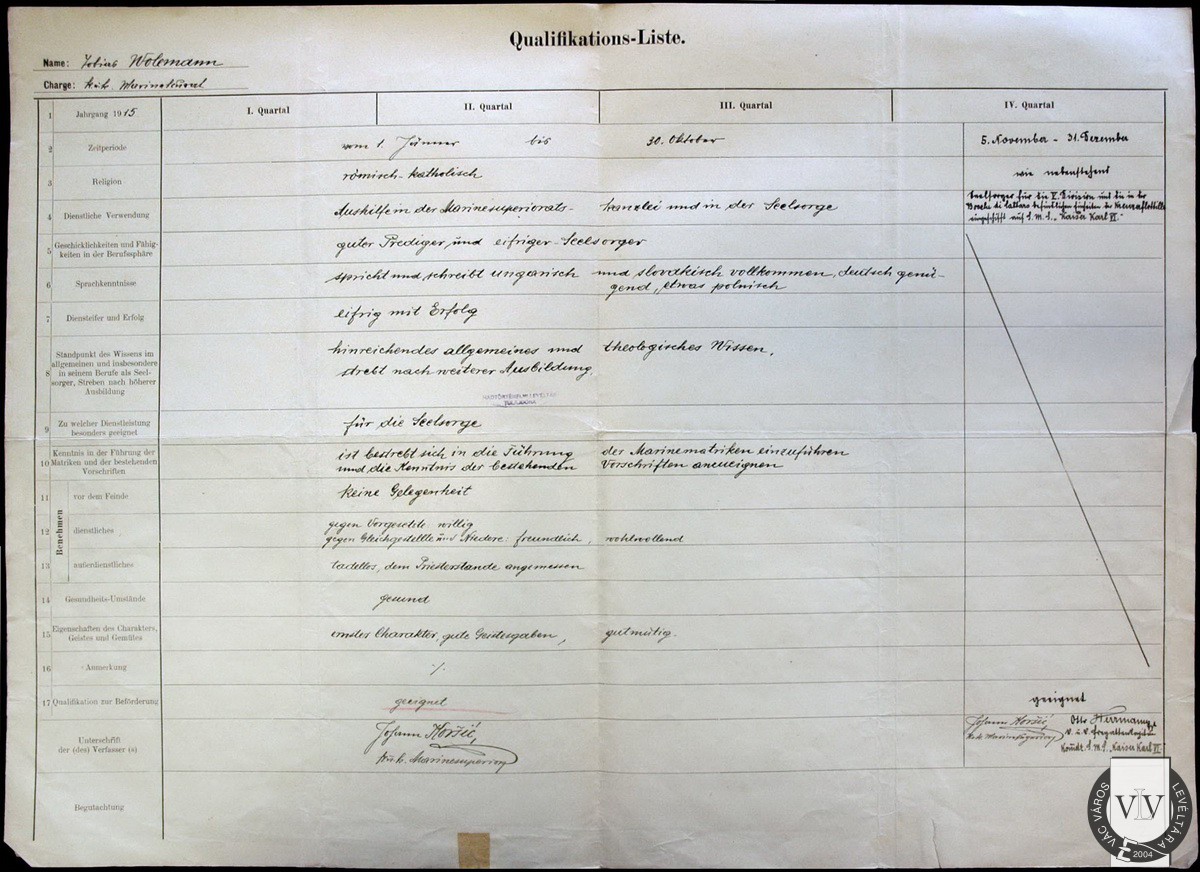 Qualifikations-Liste.
Name: Tobias Wolemann
Charge: k.u.k. Marinekurat
I. Quartal II. Quartal III. Quartal IV. Quartal
1 Jahrgang 1915
2 Zeitperiode vom 1. Jänner bis 30. Oktober 5. November - 31. Dezember
3 Religion römisch-katholisch wie nebenstehend
4 Dienstliche Verwendung Aushilfe in der Marinesuperiorats- kanzlei und in der Seelsorge
Seelsorger für die V. Division und die in der
Bocche di Cattaro befindlichen Einheiten der Kreuzerflottille
eingeschifft auf S.M.S. „Kaiser Karl VI."
5 Geschicklichkeiten und Fähig-
keiten in der Berufssphäre
guter Prediger, und eifriger Seelsorger
6 Sprachkenntnisse
spricht und schreibt ungarisch und slovakisch vollkommen, deutsch genü-
gend, etwas polnisch
7 Diensteifer und Erfolg eifrig mit Erfolg
8 Standpunkt des Wissens im
allgemeinen und insbesondere
in seinem Berufe als Seel-
sorger, Streben nach höherer
Ausbildung
hinreichendes allgemeines und theologisches Wissen,
strebt nach weiterer Ausbildung.
9 Zu welcher Dienstleistung
besonders geeignet
für die Seelsorge
10 Kenntnis in der Führung der
Matriken und der bestehenden
Vorschriften
ist bestrebt sich in die Führung der Marinematriken einzuführen
und die Kenntnis der bestehenden Vorschriften anzueignen
Benehmen
11 vor dem Feinde keine Gelegenheit
12 dienstliches
gegen Vorgesetzte willig
gegen Gleichgestellte und Niedere: freundlich, wohlwollend
13 außerdienstliches tadellos, dem Priesterstande angemessen
14 Gesundheits-Umstände gesund
15 Eigenschaften des Charakters,
Geistes und Gemütes
ernster Charakter, gute Geistesgaben, gutmütig.
16 Anmerkung ·/.
17 Qualifikation zur Beförderung geeignet geeignet
Unterschrift
der (des) Verfasser (s)
Johann Koršić,
k.u.k. Marinesuperior
Johann Koršić
k.u.k. Marinesuperior
Otto Herrmann
k. u. k. Fregattenkapitän
Komdt. S.M.S. „Kaiser Karl VI"
Begutachtung
VÁC VÁROS LEVÉLTÁRA
VLV
2004